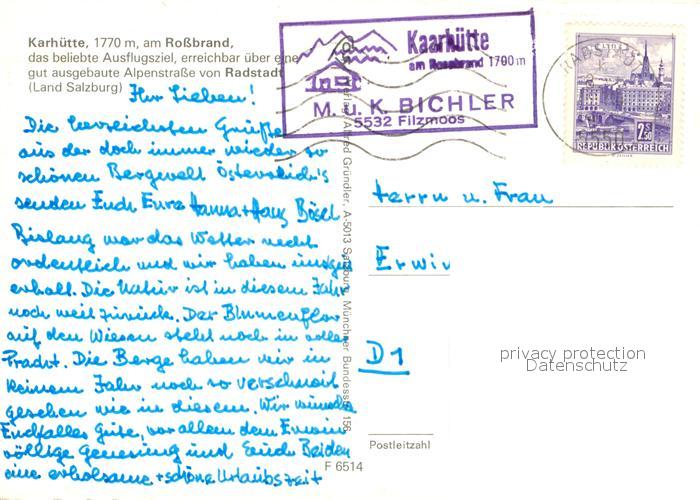 Karhütte, 1770 m, am Roßbrand,
das beliebte Ausflugsziel, erreichbar über eine
gut ausgebaute Alpenstraße von Radstadt
(Land Salzburg)
Ihr Lieben!
Die herzlichsten Grüße
aus der doch immer wieder so
schönen Bergwelt Österreich's
senden Euch Eure Hanna + Hans Bösel
Bislang war das Wetter recht
ordentlich und wir haben uns gut
erholt. Die Natur ist in diesem Jahr
noch weit zurück. Der Blumenflor
auf den Wiesen steht noch in voller
Pracht. Die Berge haben wir in
keinem Jahr noch so verschneit
gesehen wie in diesem. Wir wünschen
Euch alles Gute, vor allem dem Erwin
völlige Genesung und Euch Beiden
eine erholsame + schöne Urlaubszeit
Alfred Gründler, A-5013 Salzburg, Münchner Bundesstr. 156
F 6514
Kaarhütte
am Rossbrand 1700 m
M. u. K. BICHLER
5532 Filzmoos
RADSTADT
2.50
REPUBLIK ÖSTERREICH
Herrn u. Frau
Erwin
D1
Postleitzahl
privacy protection
Datenschutz